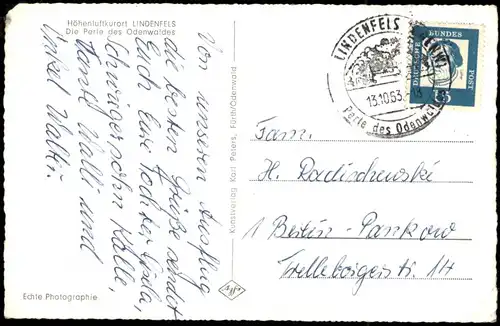 Höhenluftkurort LINDENFELS
Die Perle des Odenwaldes
Von unserem Ausflug
die besten Grüße sendet
Euch Eure Tochter
Schwiegersohn Kalle,
Tante Walli und
Onkel Walter.
Echte Photographie
Kunstverlag Karl Peters, Fürth/Odenwald
LINDENFELS
13.10.63.
Perle des Odenwaldes
DEUTSCHE BUNDES POST
15
Fam.
H. Radischewski
1 Berlin-Pankow
Trelleborgerstr. 14